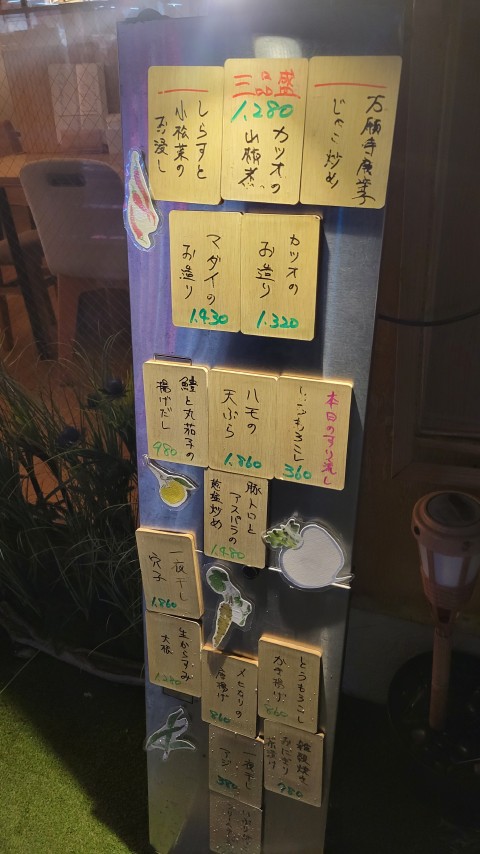 万願寺唐辛子
じゃこ炒め
三品盛
1,280
カツオの
山椒煮
しらすと
小松菜の
お浸し
カツオの
お造り
1,320
マダイの
お造り
1,430
本日のすり流し
とうもろこし
360
ハモの
天ぷら
1,860
鱧と丸茄子の
揚げだし
980
豚トロと
アスパラの
葱塩炒め
1,480
一夜干し
穴子
1,860
生からすみ
大根
1,280
とうもろこし
かき揚げ
860
メヒカリの
唐揚げ
860
雑穀焼き
おにぎり
茶漬け
980
一夜干し
アジ
380